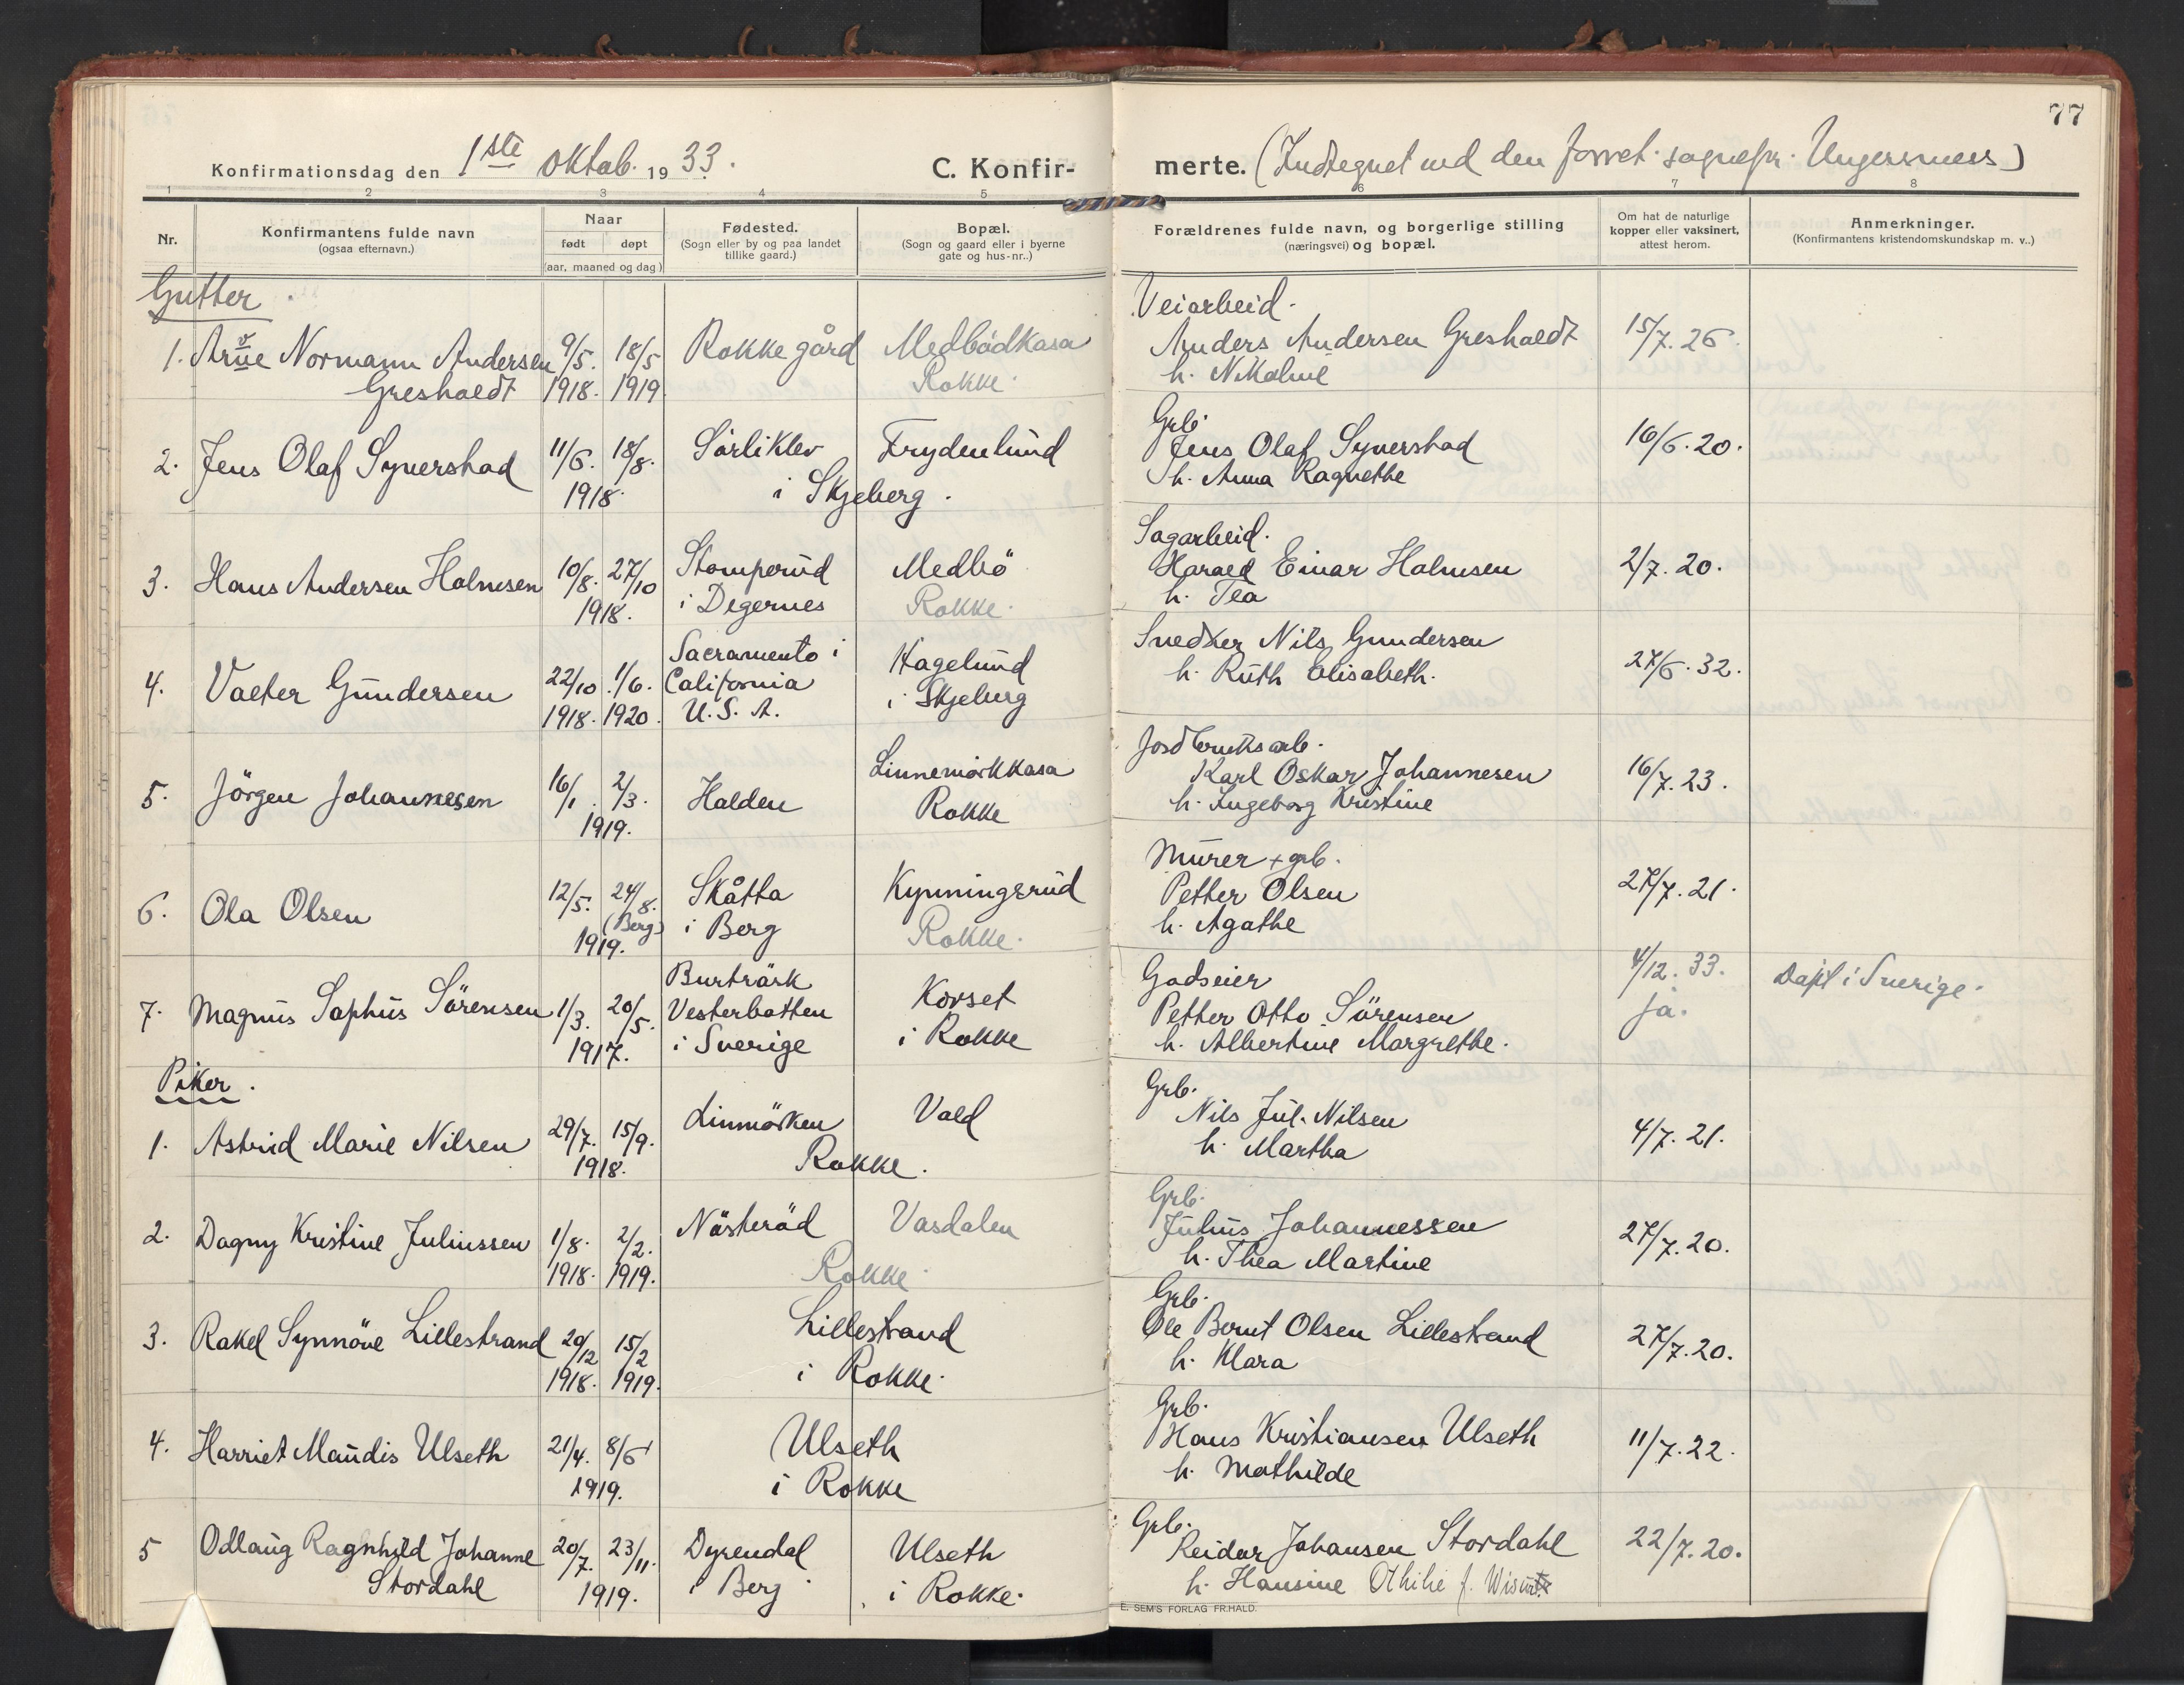 77
Konfirmationsdag den 1ste oktob. 1933.
C. Konfir-
merte. (Indtegnet ved den forret. sognepr. Ungersness)
1 2 3 4 5 6 7 8
Nr.
Konfirmantens fulde navn
(ogsaa efternavn.)
Naar
født døpt
(aar, maaned og dag)
Fødested.
(Sogn eller by og paa landet
tillike gaard.)
Bopæl.
(Sogn og gaard eller i byerne
gate og hus-nr..)
Forældrenes fulde navn, og borgerlige stilling
(næringsvei) og bopæl.
Om hat de naturlige
kopper eller vaksinert,
attest herom.
Anmerkninger.
(Konfirmantens kristendomskundskap m. v..)
Gutter.
Veiarbeid.
1. Arne Normann Andersen 9/5. 18/5 Rokke gård Medbödkasa Anders Andersen Gresholdt 15/7.26.
Gresholdt 1918. 1919 Rokke. h. Nikoline
Grb.
2. Jens Olaf Syverstad 11/6. 18/8. Sörliklev Frydenlund Jens Olaf Syverstad 16/6.20.
1918. i Skjeberg. h. Anna Ragnethe
Sagarbeid.
3. Hans Andersen Holmsen 10/8. 27/10 Stomperud Medbö Harald Einar Holmsen 2/7.20.
1918. i Degernes Rokke. h. Tea
Sacramento i Snedker Nils Gundersen
4. Valter Gundersen 22/10. 1/6. California Hagelund h. Ruth Elisabeth. 27/6.32.
1918. 1920. U.S.A. i Skjeberg
Jordbruksarb.
5. Jörgen Johannesen 16/1. 2/3. Halden Linnemörkkasa Karl Oskar Johannesen 16/7.23.
1919. Rokke h. Ingeborg Kristine
Murer + grb.
6. Ola Olsen 12/5. 24/8. Skåtta Kynningsrud Petter Olsen 27/7.21.
(Berg) 1919. i Berg Rokke. h. Agathe
Burträrk Godseier 4/12.33. Döpt i Sverige.
7. Magnus Sophus Sörensen 1/3. 20/5. Vesterbotten Korset Petter Otto Sörensen ja.
1917. i Sverige i Rokke h. Albertine Margrethe.
Piker.
Grb.
1. Astrid Marie Nilsen 29/7. 15/9. Linmörken Vold Nils Jul. Nilsen 4/7.21.
1918. Rokke. h. Martha
Grb.
2. Dagny Kristine Juliussen 1/8. 2/2. Nösteröd Vasdalen Julius Johannessen 27/7.20.
1918. 1919. Rokke. h. Thea Martine
Grb.
3. Rakel Synnöve Lillestrand 20/12 15/2 Lillestrand Ole Bernt Olsen Lillestrand 27/7.20.
1918. 1919. i Rokke. h. Klara
Grb.
4. Harriet Maudis Ulseth 21/4. 8/6 Ulseth Hans Kristiansen Ulseth 11/7.22.
1919. i Rokke h. Mathilde
Grb.
5 Odlaug Ragnhild Johanne 20/7. 23/11. Dyrendal Ulseth Reidar Johansen Stordahl 22/7.20.
Stordahl 1919. i Berg. i Rokke. h. Hansine Othilie f.
E. SEM'S FORLAG FR.HALD.